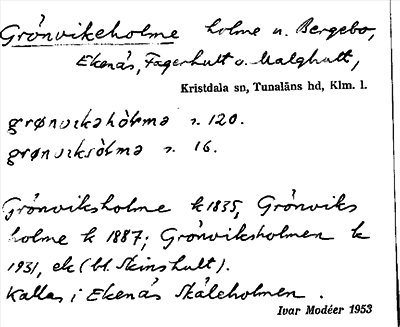 Grönvikeholme holme u. Bergebo,
Ekenäs, Fagerhult o. Malghult,
Kristdala sn, Tunaläns hd, Klm. l.
grønvikəhòlmə r. 120.
grønviksòlmə r. 16.
Grönviksholme k 1835, Grönviks
holme k 1887; Grönviksholmen k
1931, ek (bl. Skinshult).
Kallas i Ekenäs Skåleholmen.
Ivar Modéer 1953